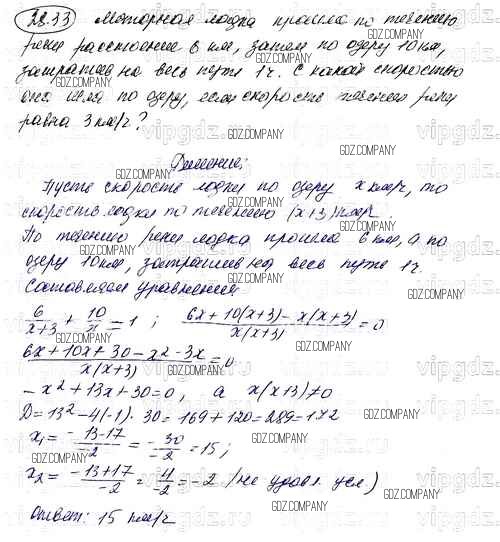 28.33 Моторная лодка прошла по течению
реки расстояние 6 км, затем по озеру 10 км,
затратив на весь путь 1 ч. С какой скоростью
она шла по озеру, если скорость течения реки
равна 3 км/ч?
Решение:
Пусть скорость лодки по озеру x км/ч, то
скорость лодки по течению (x+3) км/ч.
По течению реки лодка прошла 6 км, а по
озеру 10 км, затратив на весь путь 1 ч.
Составляем уравнение:
6/(x+3) + 10/x = 1 ; (6x + 10(x+3) - x(x+3))/(x(x+3)) = 0
(6x + 10x + 30 - x² - 3x)/(x(x+3)) = 0
-x² + 13x + 30 = 0, а x(x+3) ≠ 0
D = 13² - 4(-1)· 30 = 169 + 120 = 289 = 17²
x₁ = (-13-17)/(-2) = (-30)/(-2) = 15;
x₂ = (-13+17)/(-2) = 4/(-2) = -2 (не удовл. усл.)
Ответ: 15 км/ч
GDZ.COMPANY
vipgdz.ru